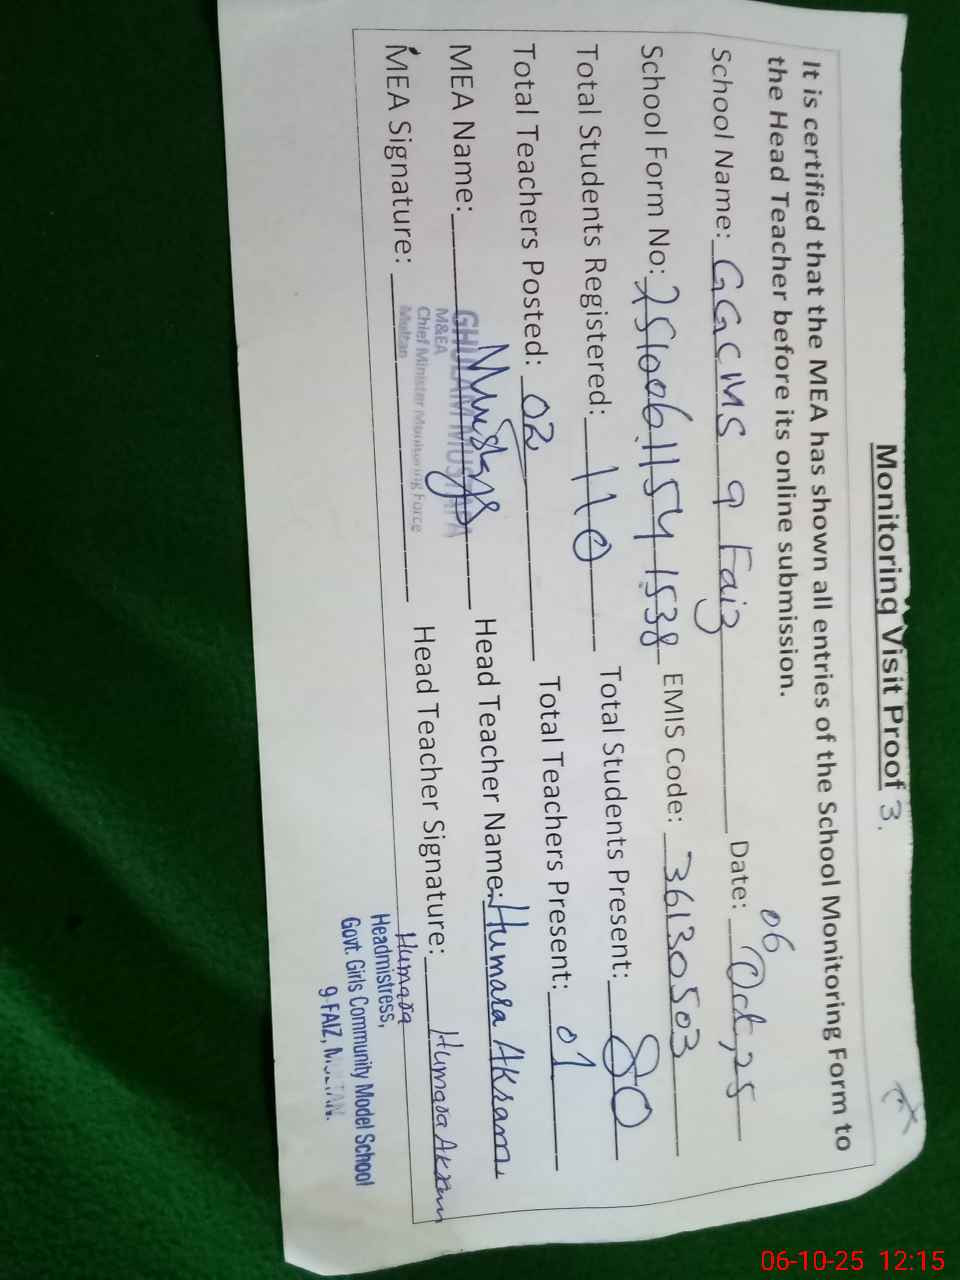 Monitoring Visit Proof 3.
It is certified that the MEA has shown all entries of the School Monitoring Form to
the Head Teacher before its online submission.
School Name: GGCMS 9 Faiz Date: 06 Oct, 25
School Form No: 2510061154 1538 EMIS Code: 36130503
Total Students Registered: 110 Total Students Present: 80
Total Teachers Posted: 02 Total Teachers Present: 01
MEA Name: GHULAM MUSTAFA Head Teacher Name: Humara Akram
M&EA
Chief Minister Monitoring Force
Multan
MEA Signature: Head Teacher Signature: Humara Akram
Humara
Headmistress,
Govt. Girls Community Model School
9-FAIZ, MULTAN.
06-10-25 12:15